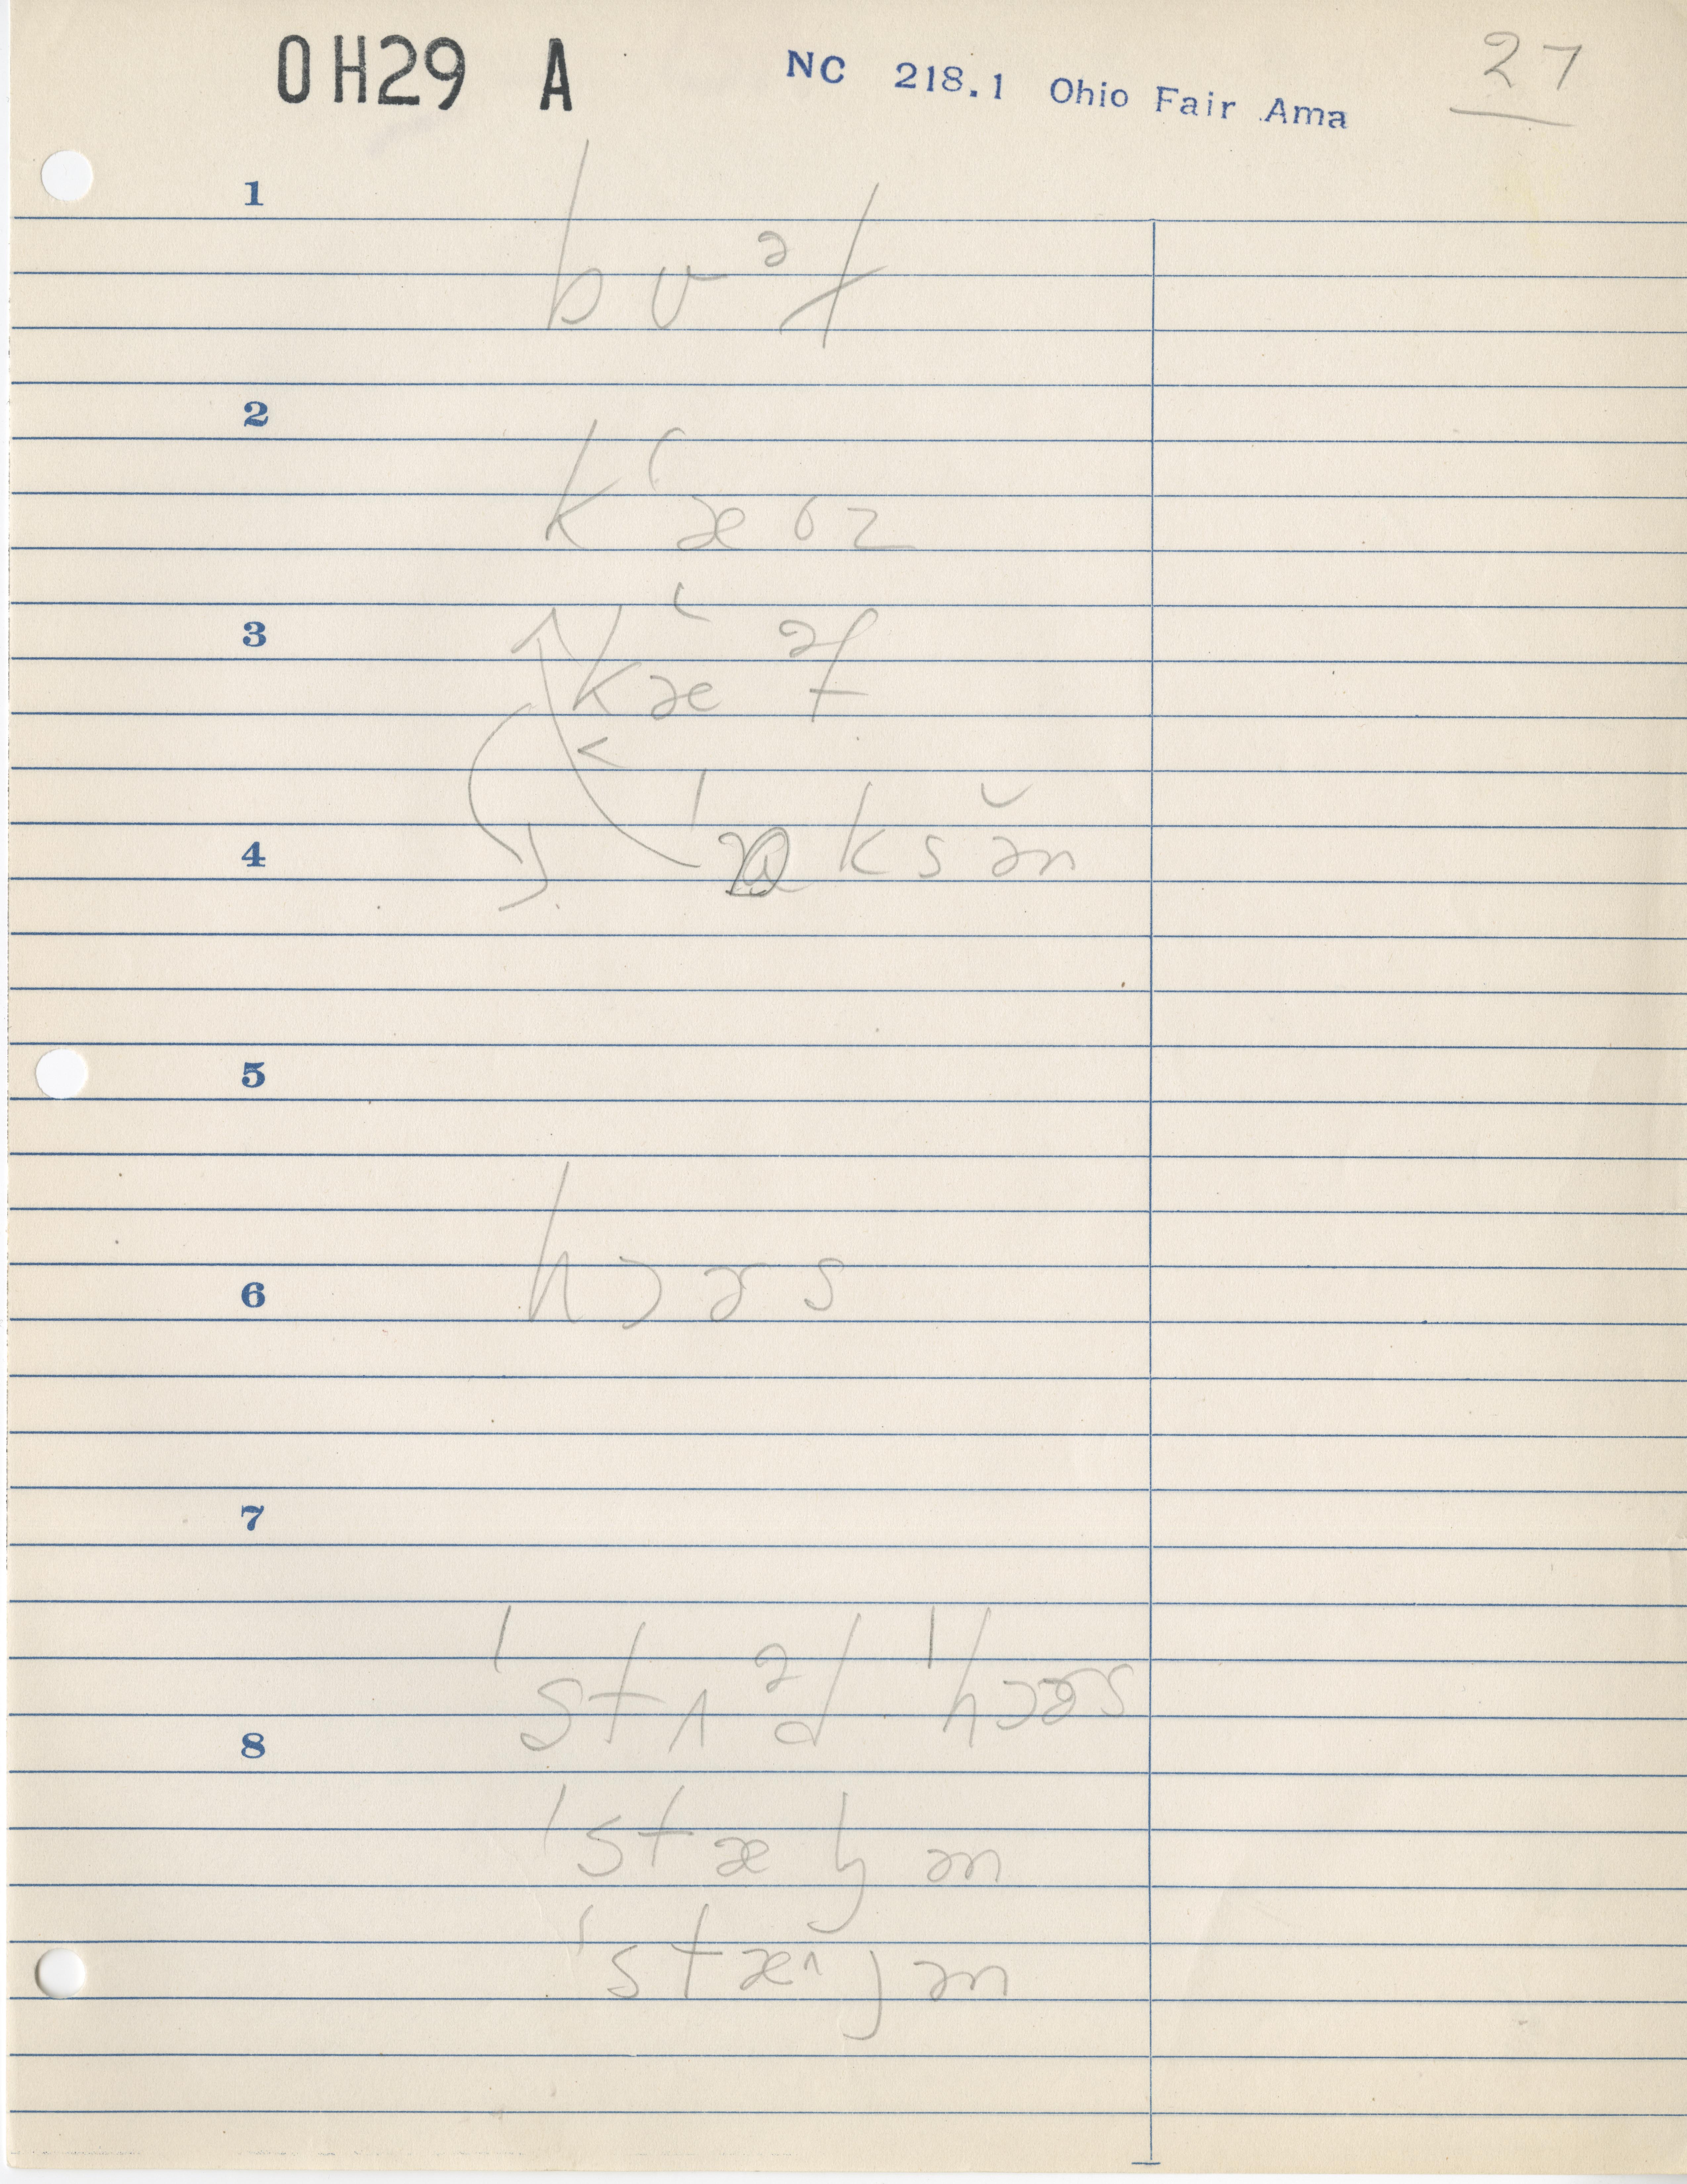 OH29 A NC 218.1 Ohio Fair Ama 27
1
bʊᵊɫ
2
kʽæʊz
3
kæᵊf
4
ˈɑksə̆n
5
6
hɔɚs
7
ˈstʌᵊd ˈhɔɚs
8
ˈstæɧən
ˈstæᶺjən